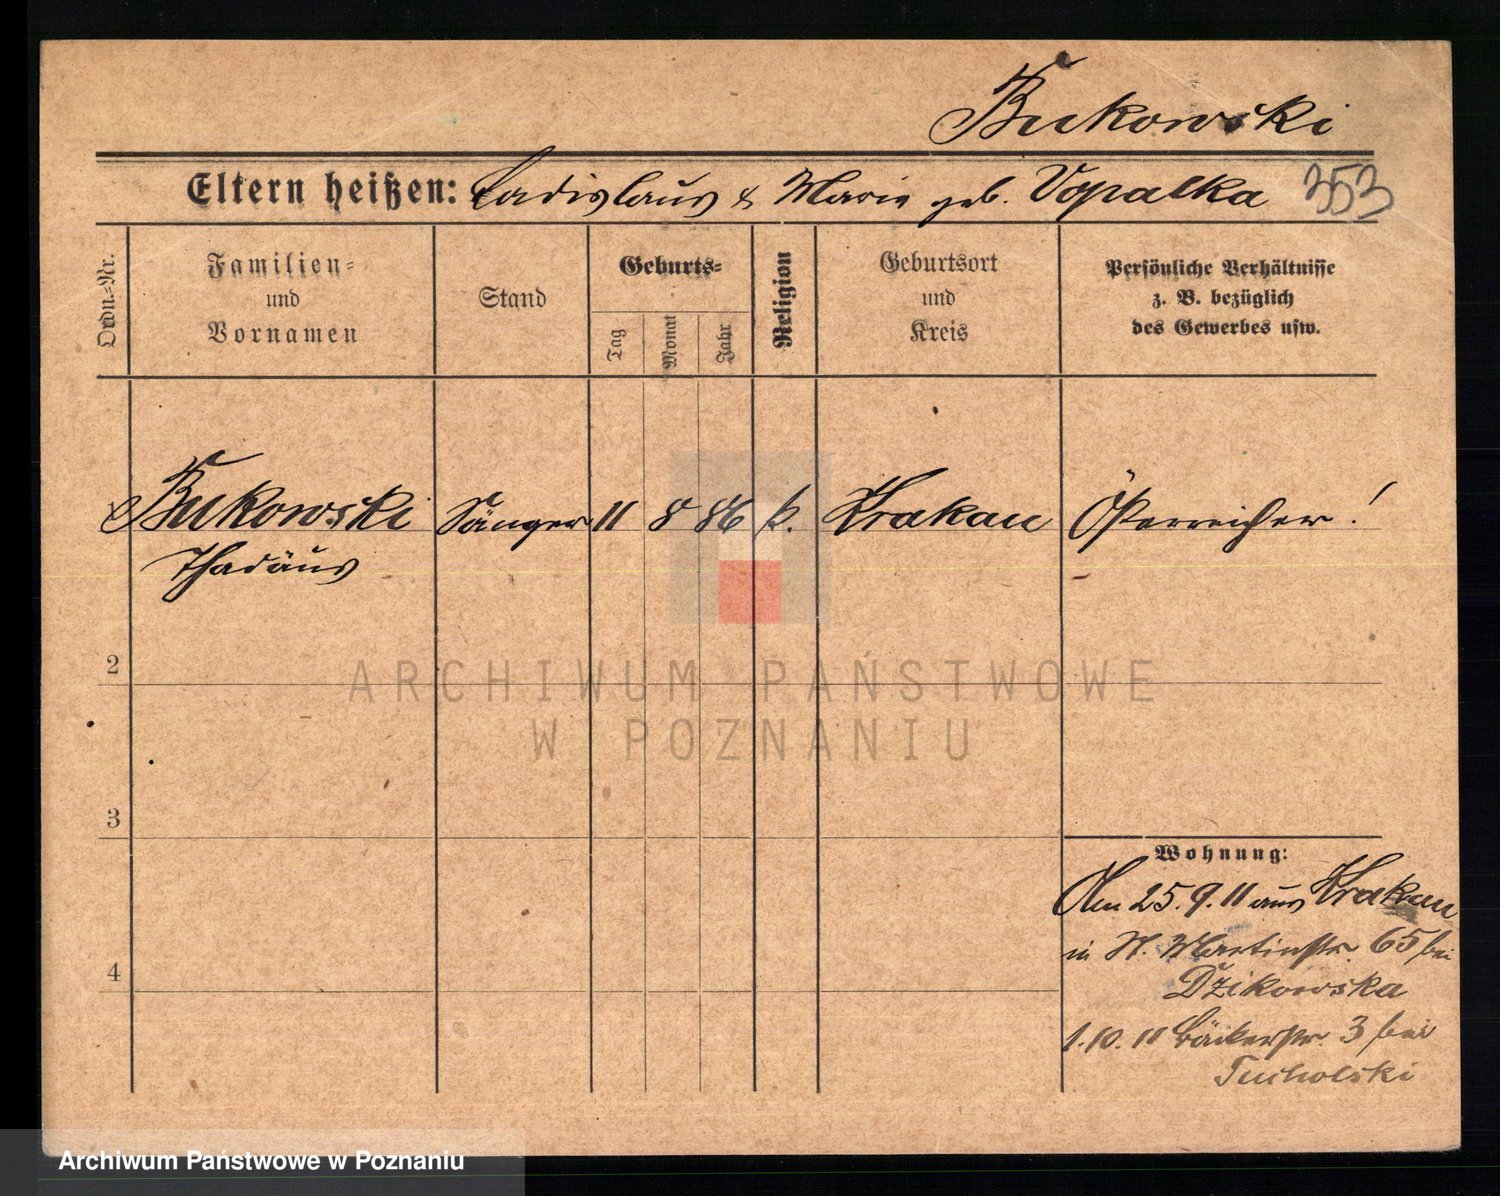 Bukowski
Eltern heißen: Ladislaus & Marie geb. Vopalka 353
Ordn.-Nr.
Familien=
und
Vornamen
Stand
Geburts=
Tag
Monat
Jahr
Religion
Geburtsort
und
Kreis
Persönliche Verhältnisse
z. B. bezüglich
des Gewerbes usw.
Bukowski Sänger 11 8 86 k. Krakau Österreicher!
Thadäus
2
ARCHIWUM PAŃSTWOWE
W POZNANIU
3
Wohnung:
Am 25.9.11 aus Krakau
in St. Martinstr. 65 bei
Dzikowska
4
1.10.11 Bäckerstr. 3 bei
Tucholski
Archiwum Państwowe w Poznaniu